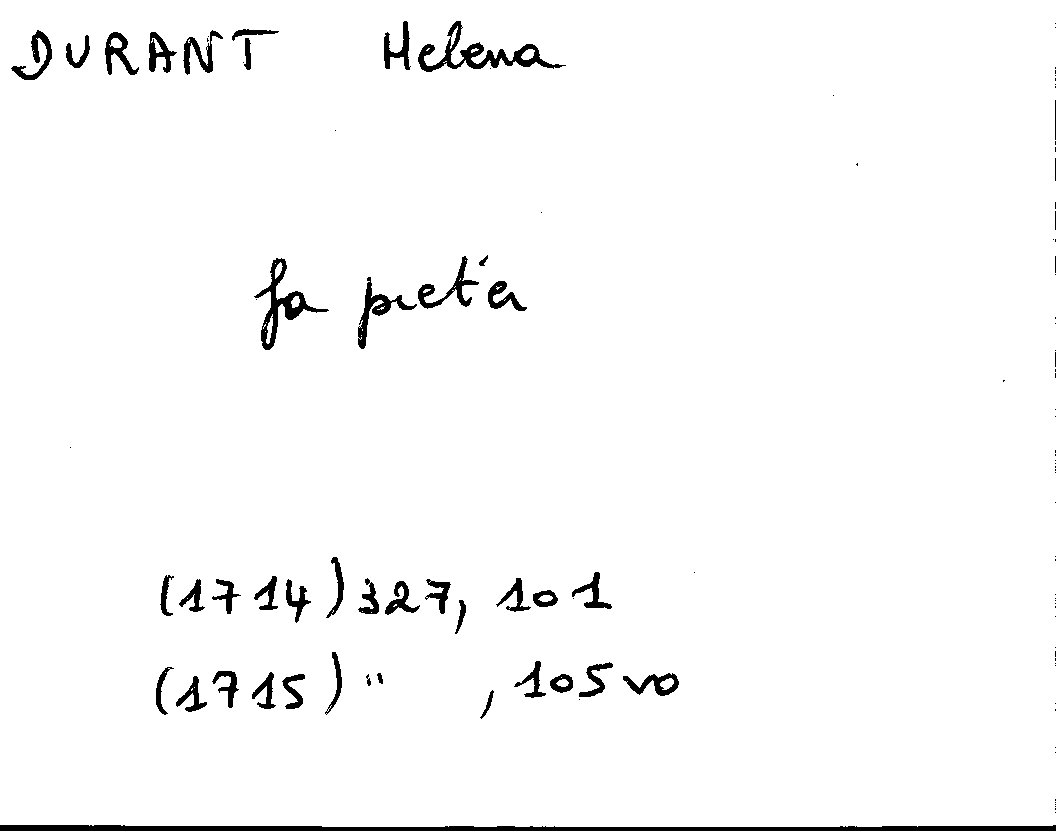 DURANT Helena
fa pieter
(1714) 327, 101
(1715) " , 105 vo